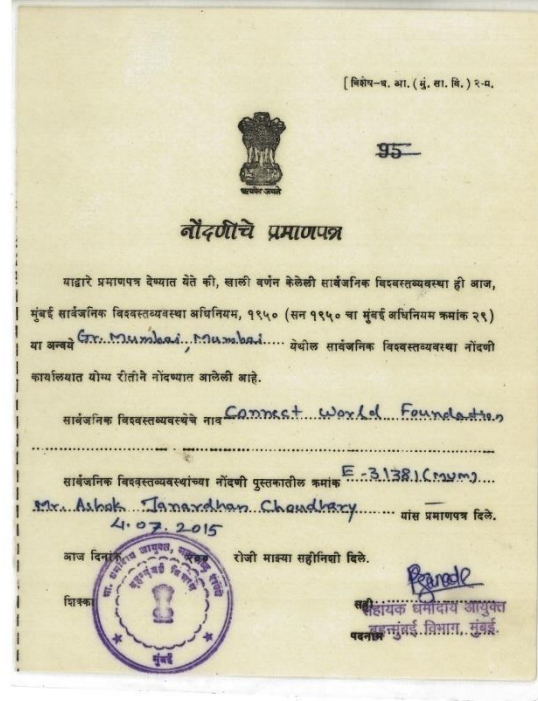 [ विशेष-ध. आ. ( मुं. सा. वि. ) २-म.
95
सत्यमेव जयते
नोंदणीचे प्रमाणपत्र
याद्वारे प्रमाणपत्र देण्यात येते की, खाली वर्णन केलेली सार्वजनिक विश्वस्तव्यवस्था ही आज,
मुंबई सार्वजनिक विश्वस्तव्यवस्था अधिनियम, १९५० (सन १९५० चा मुंबई अधिनियम क्रमांक २९)
या अन्वये Gr. Mumbai, Mumbai येथील सार्वजनिक विश्वस्तव्यवस्था नोंदणी
कार्यालयात योग्य रीतीने नोंदण्यात आलेली आहे.
सार्वजनिक विश्वस्तव्यवस्थेचे नाव Connect World Foundation
सार्वजनिक विश्वस्तव्यवस्थांच्या नोंदणी पुस्तकातील क्रमांक E-31381 (Mum)
Mr. Ashok Janardhan Choudhary यांस प्रमाणपत्र दिले.
4.07.2015
आज दिनांक रोजी माझ्या सहीनिशी दिले.
शिक्का
मुंबई
सही
सहायक धर्मादाय आयुक्त
पदनाम बृहन्मुंबई विभाग, मुंबई.